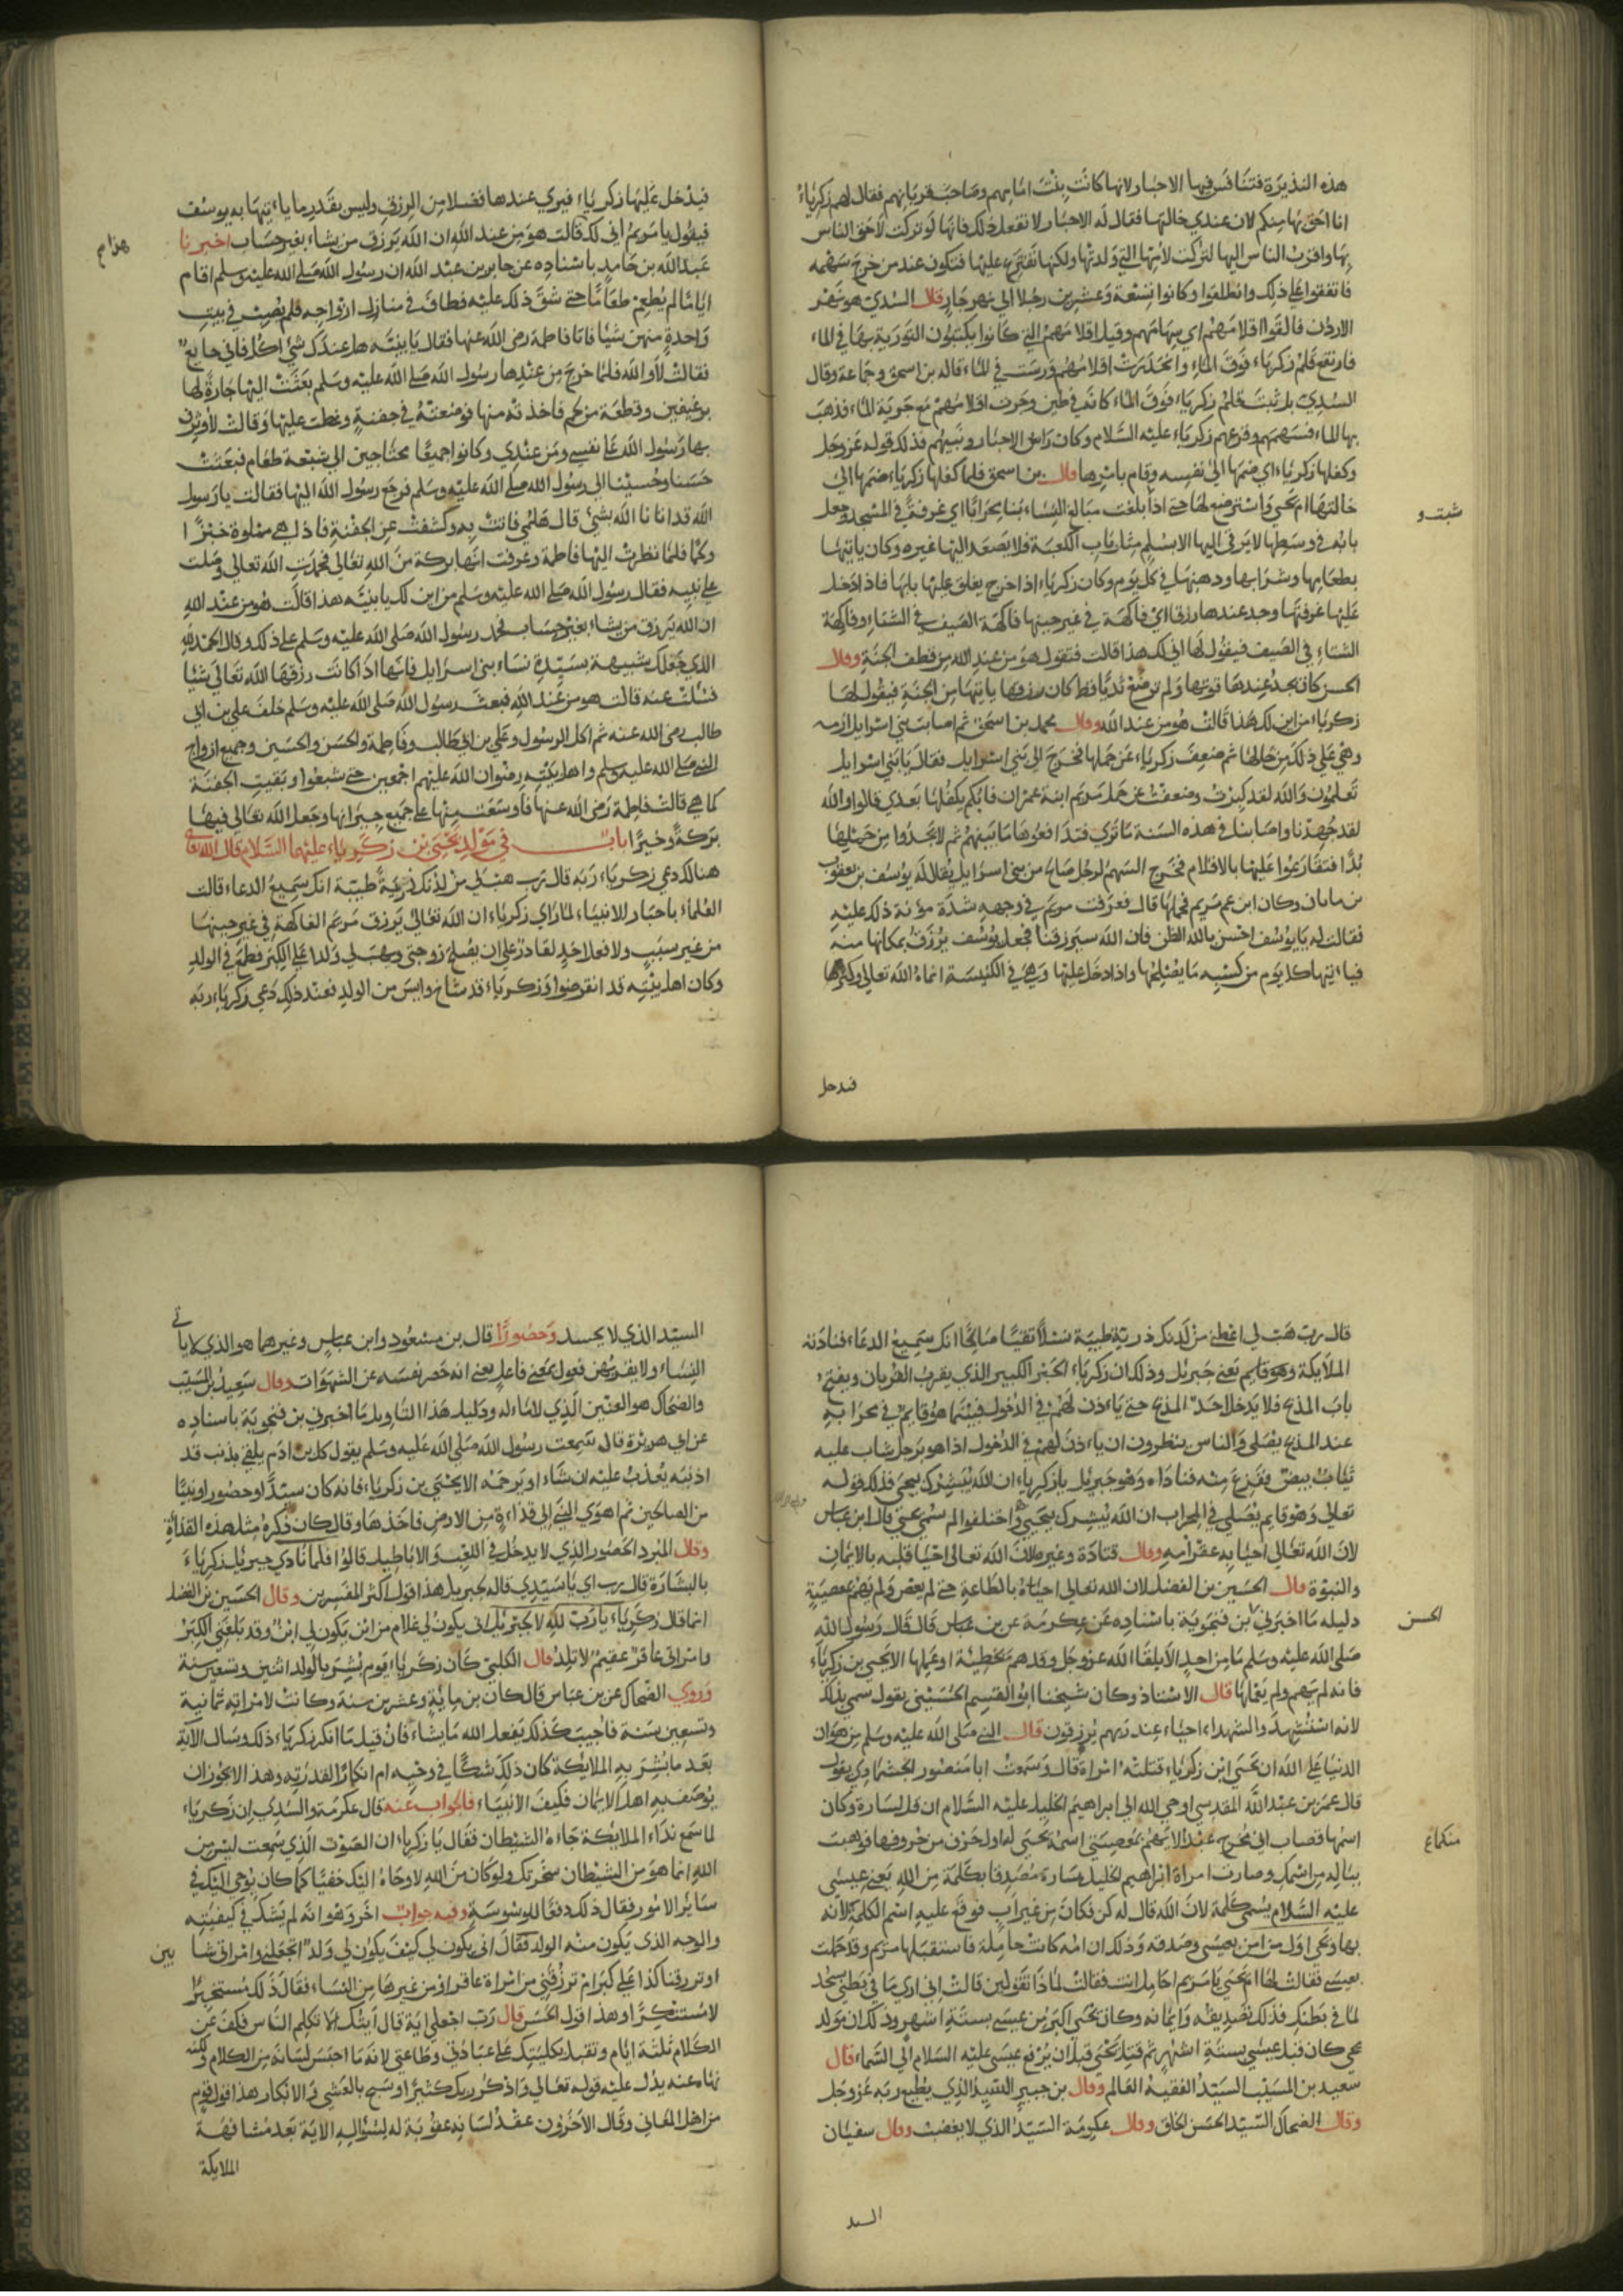 هذه النذيرة فتنافس فيها الاحبار لانها كانت بنت امامهم وصاحب قربانهم فقال لهم زكرياء
انا احق بها منكم لان عندي خالتها فقال له الاحبار لا تفعل ذلك فانها لو تركت لاحق الناس
بها واقرب الناس اليها لتركت لامها التي ولدتها ولكنها نقترع عليها فتكون عند من خرج سهمه
فاتفقوا على ذلك وانطلقوا وكانوا تسعة وعشرين رجلا الي نهر جار قال السدي هو نهر
الاردن فالقوا اقلامهم اي سهامهم وقيل اقلامهم التي كانوا يكتبون التورية بها في الماء
فارتفع قلم زكرياء فوق الماء وانحدرت اقلامهم ورست في الماء قاله بن اسحق وجماعة وقال
السدي بل ثبت قلم زكرياء فوق الماء كانه في طين وجرت اقلامهم مع جرية الماء فذهب
بها الماء فسهمهم وقرعهم زكرياء عليه السلام وكان راس الاحبار ونبيهم فذلك قوله عز وجل
وكفلها زكرياء اي ضمها الى نفسه وقام بامرها قال بن اسحق فلما كفلها زكرياء ضمها الي
خالتها ام يحيي واسترضع لها حتى اذا بلغت مبالغ النساء بنا لها محرابا اي غرفة في المسجد وجعل
شبت و
بابه في وسطها لا يرقى اليها الا بسلم مثل باب الكعبة فلا يصعد اليها غيره وكان ياتيها
بطعامها وشرابها ودهنها في كل يوم وكان زكرياء اذا خرج يغلق عليها بابها فاذا دخل
عليها غرفتها وجد عندها رزقا اي فاكهة في غير حينها فاكهة الصيف في الشتاء وفاكهة
الشتاء في الصيف فيقول لها انى لك هذا قالت فتقول هو من عند الله من قطف الجنة وقال
الحسن كان يجد عندها قوتها ولم ترضع ثديا قط كان رزقها ياتيها من الجنة فيقول لها
زكرياء من اين لك هذا قالت هو من عند الله وقال محمد بن اسحق ثم اصابت بني اسرايل ازمة
وهي على ذلك من حالها ثم ضعف زكرياء عن حملها فخرج الي بني اسرايل فقال يا بني اسرايل
تعلمون والله لقد كبرت وضعفت عن حمل مريم ابنة عمران فايكم يكفلها بعدي قالوا والله
لقد جهدنا واصابنا في هذه السنة ما ترى فتدافعوها ما بينهم ثم لم يجدوا من حملها
بدا فتقارعوا عليها بالاقلام فخرج السهم لرجل صالح من بني اسرايل يقال له يوسف بن يعقوب
بن ماتان وكان ابن عم مريم فحملها قال فعرفت مريم في وجهه شدة مؤنة ذلك عليه
فقالت له يا يوسف احسن بالله الظن فان الله سيرزقنا فجعل يوسف يرزق بمكانها منه
فياءتيها كل يوم من كسبه ما يصلحها واذا دخل عليها وهي في الكنيسة انماه الله تعالى وكثرها
فيدخل
فيدخل عليها زكرياء فيرى عندها فضلا من الرزق وليس بقدر ما ياءتيها به يوسف
فيقول يا مريم انى لك قالت هو من عند الله ان الله يرزق من يشاء بغير حساب اخبرنا
هذا م
عبد الله بن حامد باسناده عن جابر بن عبد الله ان رسول الله صلى الله عليه وسلم اقام
اياما لم يطعم طعاما حتى شق ذلك عليه فطاف في منازل ازواجه فلم يصب في بيت
واحدة منهن شيا فاتا فاطمة رضى الله عنها فقال يا بنية هل عندك شي اكل فاني جايع
فقالت لا والله فلما خرج من عندها رسول الله صلى الله عليه وسلم بعثت اليها جارة لها
برغيفين وقطعة من لحم فاخذته منها فوضعته في جفنة وغطت عليها وقالت لاوثرن
بها رسول الله على نفسي ومن عندي وكانوا جميعا محتاجين الي شبعة طعام فبعثت
حسنا وحسينا الى رسول الله صلى الله عليه وسلم فرجع رسول الله اليها فقالت يا رسول
الله قد اتانا الله بشي قال هلمي فاتت به وكشفت عن الجفنة فاذا هي مملوة خبزا
ولحما فلما نظرت اليها فاطمة وعرفت انها بركة من الله تعالي فحمدت الله تعالى وصلت
على نبيه فقال رسول الله صلى الله عليه وسلم من اين لك يا بنية هذا قالت هو من عند الله
ان الله يرزق من يشاء بغير حساب فحمد رسول الله صلى الله عليه وسلم على ذلك وقال الحمد لله
الذي جعلك شبيهة بسيدة نساء بني اسرايل فانها اذا كانت رزقها الله تعالى شيا
فسئلت عنه قالت هو من عند الله فبعث رسول الله صلى الله عليه وسلم خلف علي بن ابي
طالب رضى الله عنه ثم اكل الرسول وعلي بن ابي طالب وفاطمة والحسن والحسين وجميع ازواج
النبي صلى الله عليه وسلم واهل بيته رضوان الله عليهم اجمعين حتى شبعوا وبقيت الجفنة
كما هي قالت فاطمة رضى الله عنها فاوسعت منها على جميع جيرانها وجعل الله تعالى فيها
بركة وخيرا باب في مولد يحيى بن زكرياء عليهما السلام قال الله تعالى
هنالك دعى زكرياء ربه قال رب هب لي من لدنك ذرية طيبة انك سميع الدعاء قالت
العلماء باخبار الانبياء لما راى زكرياء ان الله تعالى يرزق مريم الفاكهة في غير حينها
من غير سبب ولا فعل احد لقادر على ان يصلح زوجتى ويهب لي ولدا على الكبر فطمع في الولد
وكان اهل بيته قد انقرضوا وزكرياء قد شاخ وايس من الولد فعند ذلك دعى زكرياء ربه
قال رب هب لي اعطني من لدنك ذرية طيبة نسلا تقيا صالحا انك سميع الدعاء فنادته
الملايكة وهو قايم يعني جبريل وذلك ان زكرياء الحبر الكبير الذي يقرب القربان ويفتح
باب المذبح فلا يدخل احد المذبح حتى ياءذن لهم في الدخول فبينما هو قايم في محرابه
عند المذبح يصلى والناس ينظرون ان ياءذن لهم في الدخول اذا هو برجل شاب عليه
ثياب بيض ففزع منه فناداه وهو جبريل يا زكرياء ان الله يبشرك بيحيى فذلك قوله
تعالى وهو قايم يصلي في المحراب ان الله يبشرك بيحيى واختلفوا لم سمي يحيى قال ابن عباس
لان الله تعالى احيا به عقر امه وقال قتادة وغيره لان الله تعالى احيا قلبه بالايمان
والنبوة قال الحسين بن الفضل لان الله تعالى احياه بالطاعة حتى لم يعص ولم يهم بمعصية
دليله ما اخبرني بن فنجوية باسناده عن عكرمة عن بن عباس قال قال رسول الله
الحسن
صلى الله عليه وسلم ما من احد الا يلقا الله عز وجل وقد هم بخطيئة او عملها الا يحيى بن زكرياء
فانه لم يهم ولم يعملها قال الاستاذ وكان شيخنا ابو القسم الحسيني يقول سمي بذلك
لانه استشهد والشهداء احياء عند ربهم يرزقون قال النبي صلى الله عليه وسلم من هوان
الدنيا على الله ان يحيى ابن زكرياء قتلته امراة قال وسمعت ابا منصور الجمشادي يقول
قال عمر بن عبد الله المقدسي اوحى الله الى ابراهيم الخليل عليه السلام ان قل لسارة وكان
منكما غ
بيناله من اسمك وصارت امراة ابراهيم الخليل سارة مصدقا بكلمة من الله يعني عيسى
عليه السلام يسمى كلمة لان الله قال له كن فكان من غير اب فوقع عليه اسم الكلمة لانه
بها ويحيى اول من امن بعيسى وصدقه وذلك ان امه كانت حاملة فاستقبلها مريم وقد حملت
بعيسى فقالت لها ام يحيى يا مريم احامل انت فقالت لماذا تقولين قالت اني ارى ما في بطني يسجد
لما في بطنك فذلك تصديقه وايمانه وكان يحيى اكبر من عيسى بستة اشهر وذلك ان مولد
يحيى كان قبل عيسى بستة اشهر ثم قتل يحيى قبل ان يرفع عيسى عليه السلام الى السماء قال
سعيد بن المسيب السيد الفقيه العالم وقال بن جبير السيد الذي يطيع ربه عز وجل
وقال الضحاك السيد الحسن الخلق وقال عكرمة السيد الذي لا يغضب وقال سفيان
السيد
السيد الذي لا يحسد وحصورا قال بن مسعود وابن عباس وغيرهما هو الذي لا ياتي
النساء ولا يقربهن فعول بمعنى فاعل يعني انه حصر نفسه عن الشهوات وقال سعيد بن المسيب
والضحاك هو العنين الذي لا ماء له ودليل هذا التاويل ما اخبرني بن فنجوية باسناده
عن ابي هريرة قال سمعت رسول الله صلى الله عليه وسلم يقول كل بن ادم يلقى بذنب قد
اذنبه يعذب عليه ان شاء او يرحمه الا يحيى بن زكرياء فانه كان سيدا وحصورا ونبيا
من الصالحين ثم اهوى النبي الى قذاءة من الارض فاخذها وقال كان ذكره مثل هذه القذاءة
وقال المبرد الحصور الذي لا يدخل في اللعب والاباطيل قالوا فلما نادى جبريل زكرياء
بالبشارة قال رب اي يا سيدي قاله لجبريل هذا قول اكثر المفسرين وقال الحسين بن الفضل
انما قال زكرياء يا رب لله لا لجبريل انى يكون لي غلام من اين يكون لي ابن وقد بلغني الكبر
وامراتي عاقر عقيم لا تلد قال الكلبي كان زكرياء يوم بشر بالولد اثنين وتسعين سنة
وروي الضحاك عن بن عباس قال كان بن ماية وعشرين سنة وكانت لامراته ثمانية
وتسعين سنة فاجيب كذلك يفعل الله ما يشاء فان قيل ما انكر زكرياء ذلك وسال الآية
بعد ما بشر به الملايكة كان ذلك شكا في وحيه ام انكارا لقدرته وهذا لا يجوز ان
يوصف به اهل الايمان فكيف الانبياء فالجواب عنه قال عكرمة والسدي ان زكرياء
لما سمع نداء الملايكة جاءه الشيطان فقال يا زكرياء ان الصوت الذي سمعت ليس من
الله انما هو من الشيطان سخر بك ولو كان من الله لاوحاه اليك خفيا كما كان يوحي اليك في
ساير الامور فقال ذلك دفعا للوسوسة وفيه جواب اخر وهو انه لم يشك في كيفيته
والوجه الذي يكون منه الولد فقال انى يكون لي كيف يكون لي ولد اتجعلني وامراتي شا
بين
او ترزقنا كذا على كبر ام ترزقني من امراة عاقر او من غيرها من النساء فقال ذلك مستخبرا
لا مستنكرا وهذا قول الحسن قال رب اجعل لي اية قال ايتك الا تكلم الناس فكف عن
الكلام ثلثة ايام وتقبل بكليتك على عبادتي وطاعتي لانه ما احتبس لسانه من الكلام ولكنه
نهاه عنه يدل عليه قوله تعالى واذكر ربك كثيرا وسبح بالعشي والابكار هذا قول قوم
من اهل المعاني وقال الآخرون عقد لسانه عقوبة له لسؤاله الاية بعد مشافهة
الملايكة